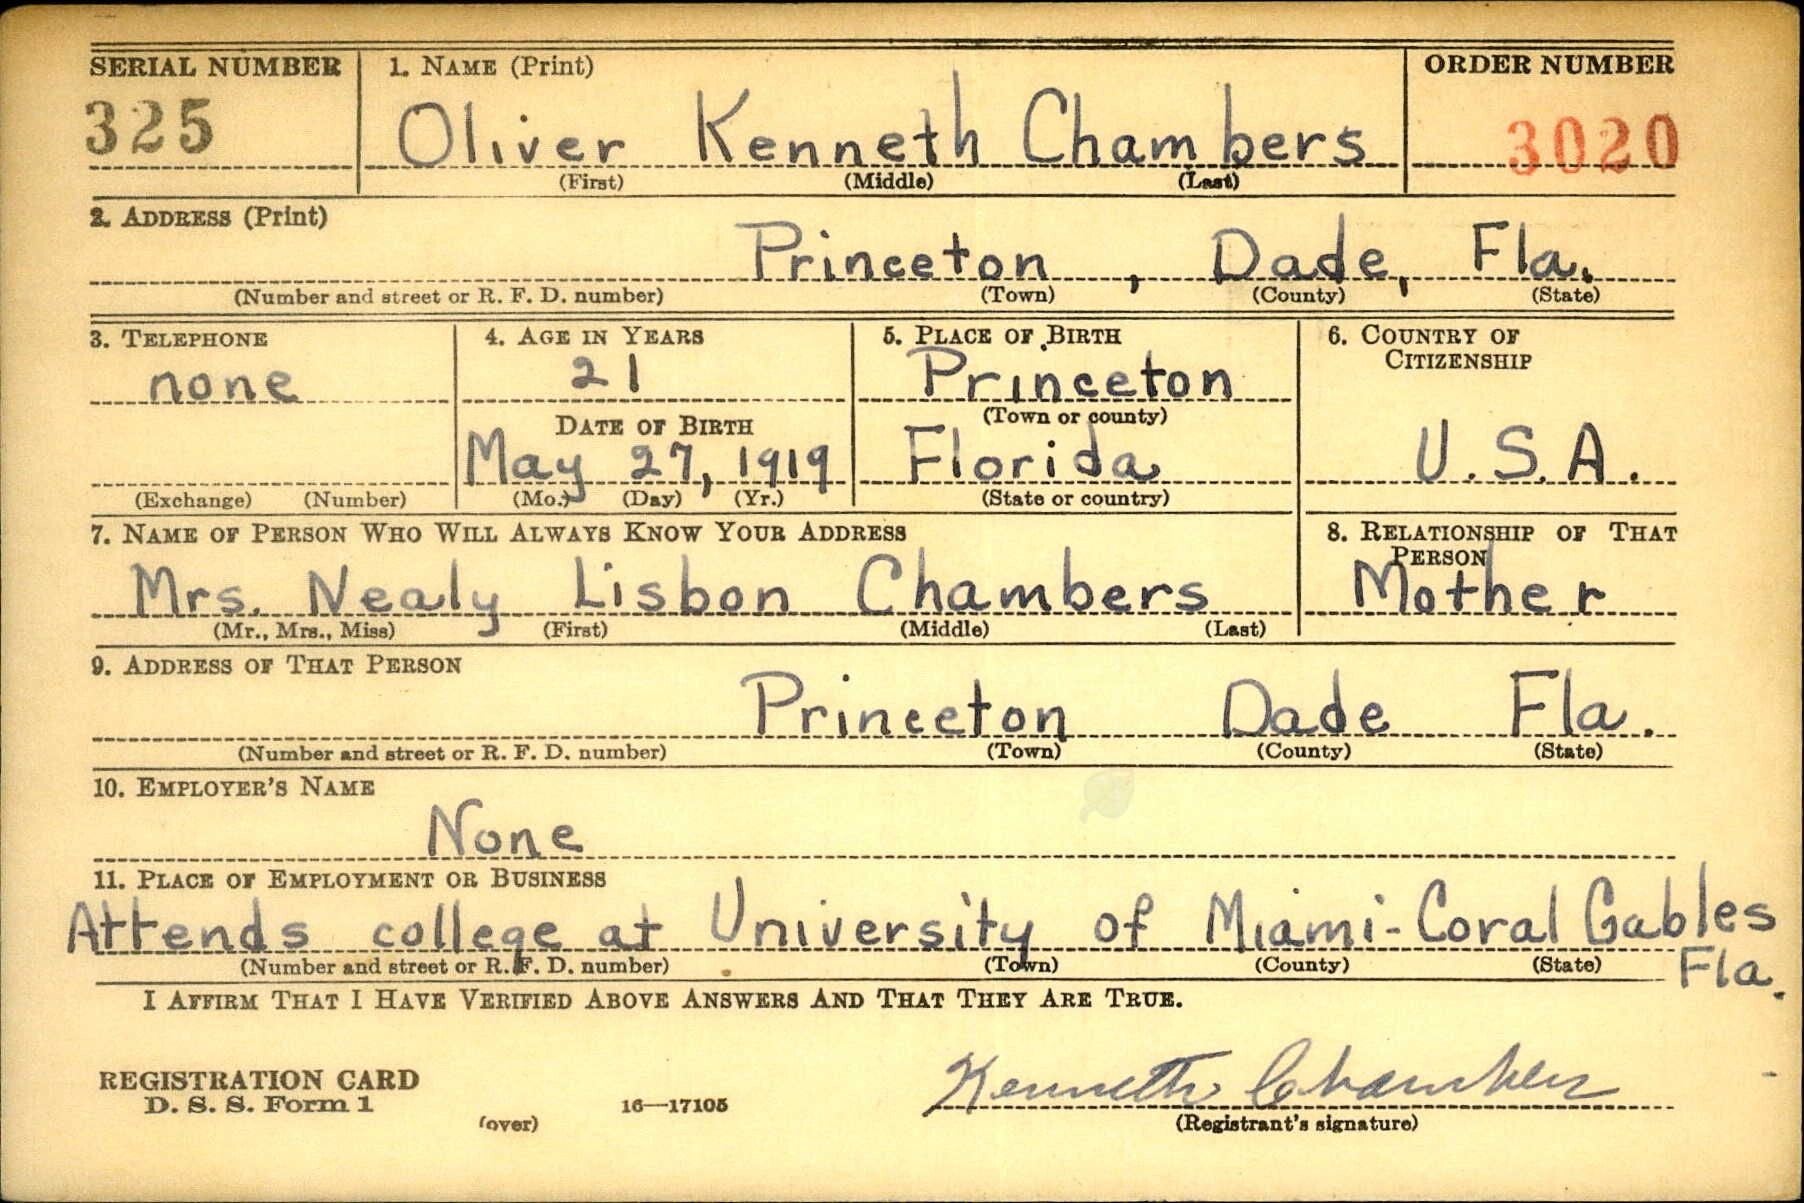 SERIAL NUMBER 1. NAME (Print) ORDER NUMBER
325 Oliver Kenneth Chambers 3020
(First) (Middle) (Last)
2. ADDRESS (Print)
Princeton, Dade, Fla.
(Number and street or R. F. D. number) (Town) (County) (State)
3. TELEPHONE 4. AGE IN YEARS 5. PLACE OF BIRTH 6. COUNTRY OF
CITIZENSHIP
none 21 Princeton
(Town or county)
DATE OF BIRTH
May 27, 1919 Florida U.S.A.
(Exchange) (Number) (Mo.) (Day) (Yr.) (State or country)
7. NAME OF PERSON WHO WILL ALWAYS KNOW YOUR ADDRESS 8. RELATIONSHIP OF THAT
PERSON
Mrs. Nealy Lisbon Chambers Mother
(Mr., Mrs., Miss) (First) (Middle) (Last)
9. ADDRESS OF THAT PERSON
Princeton Dade Fla.
(Number and street or R. F. D. number) (Town) (County) (State)
10. EMPLOYER'S NAME
None
11. PLACE OF EMPLOYMENT OR BUSINESS
Attends college at University of Miami-Coral Gables
Fla.
(Number and street or R. F. D. number) (Town) (County) (State)
I AFFIRM THAT I HAVE VERIFIED ABOVE ANSWERS AND THAT THEY ARE TRUE.
REGISTRATION CARD
D. S. S. Form 1 (over) 16—17105 Kenneth Chambers
(Registrant's signature)